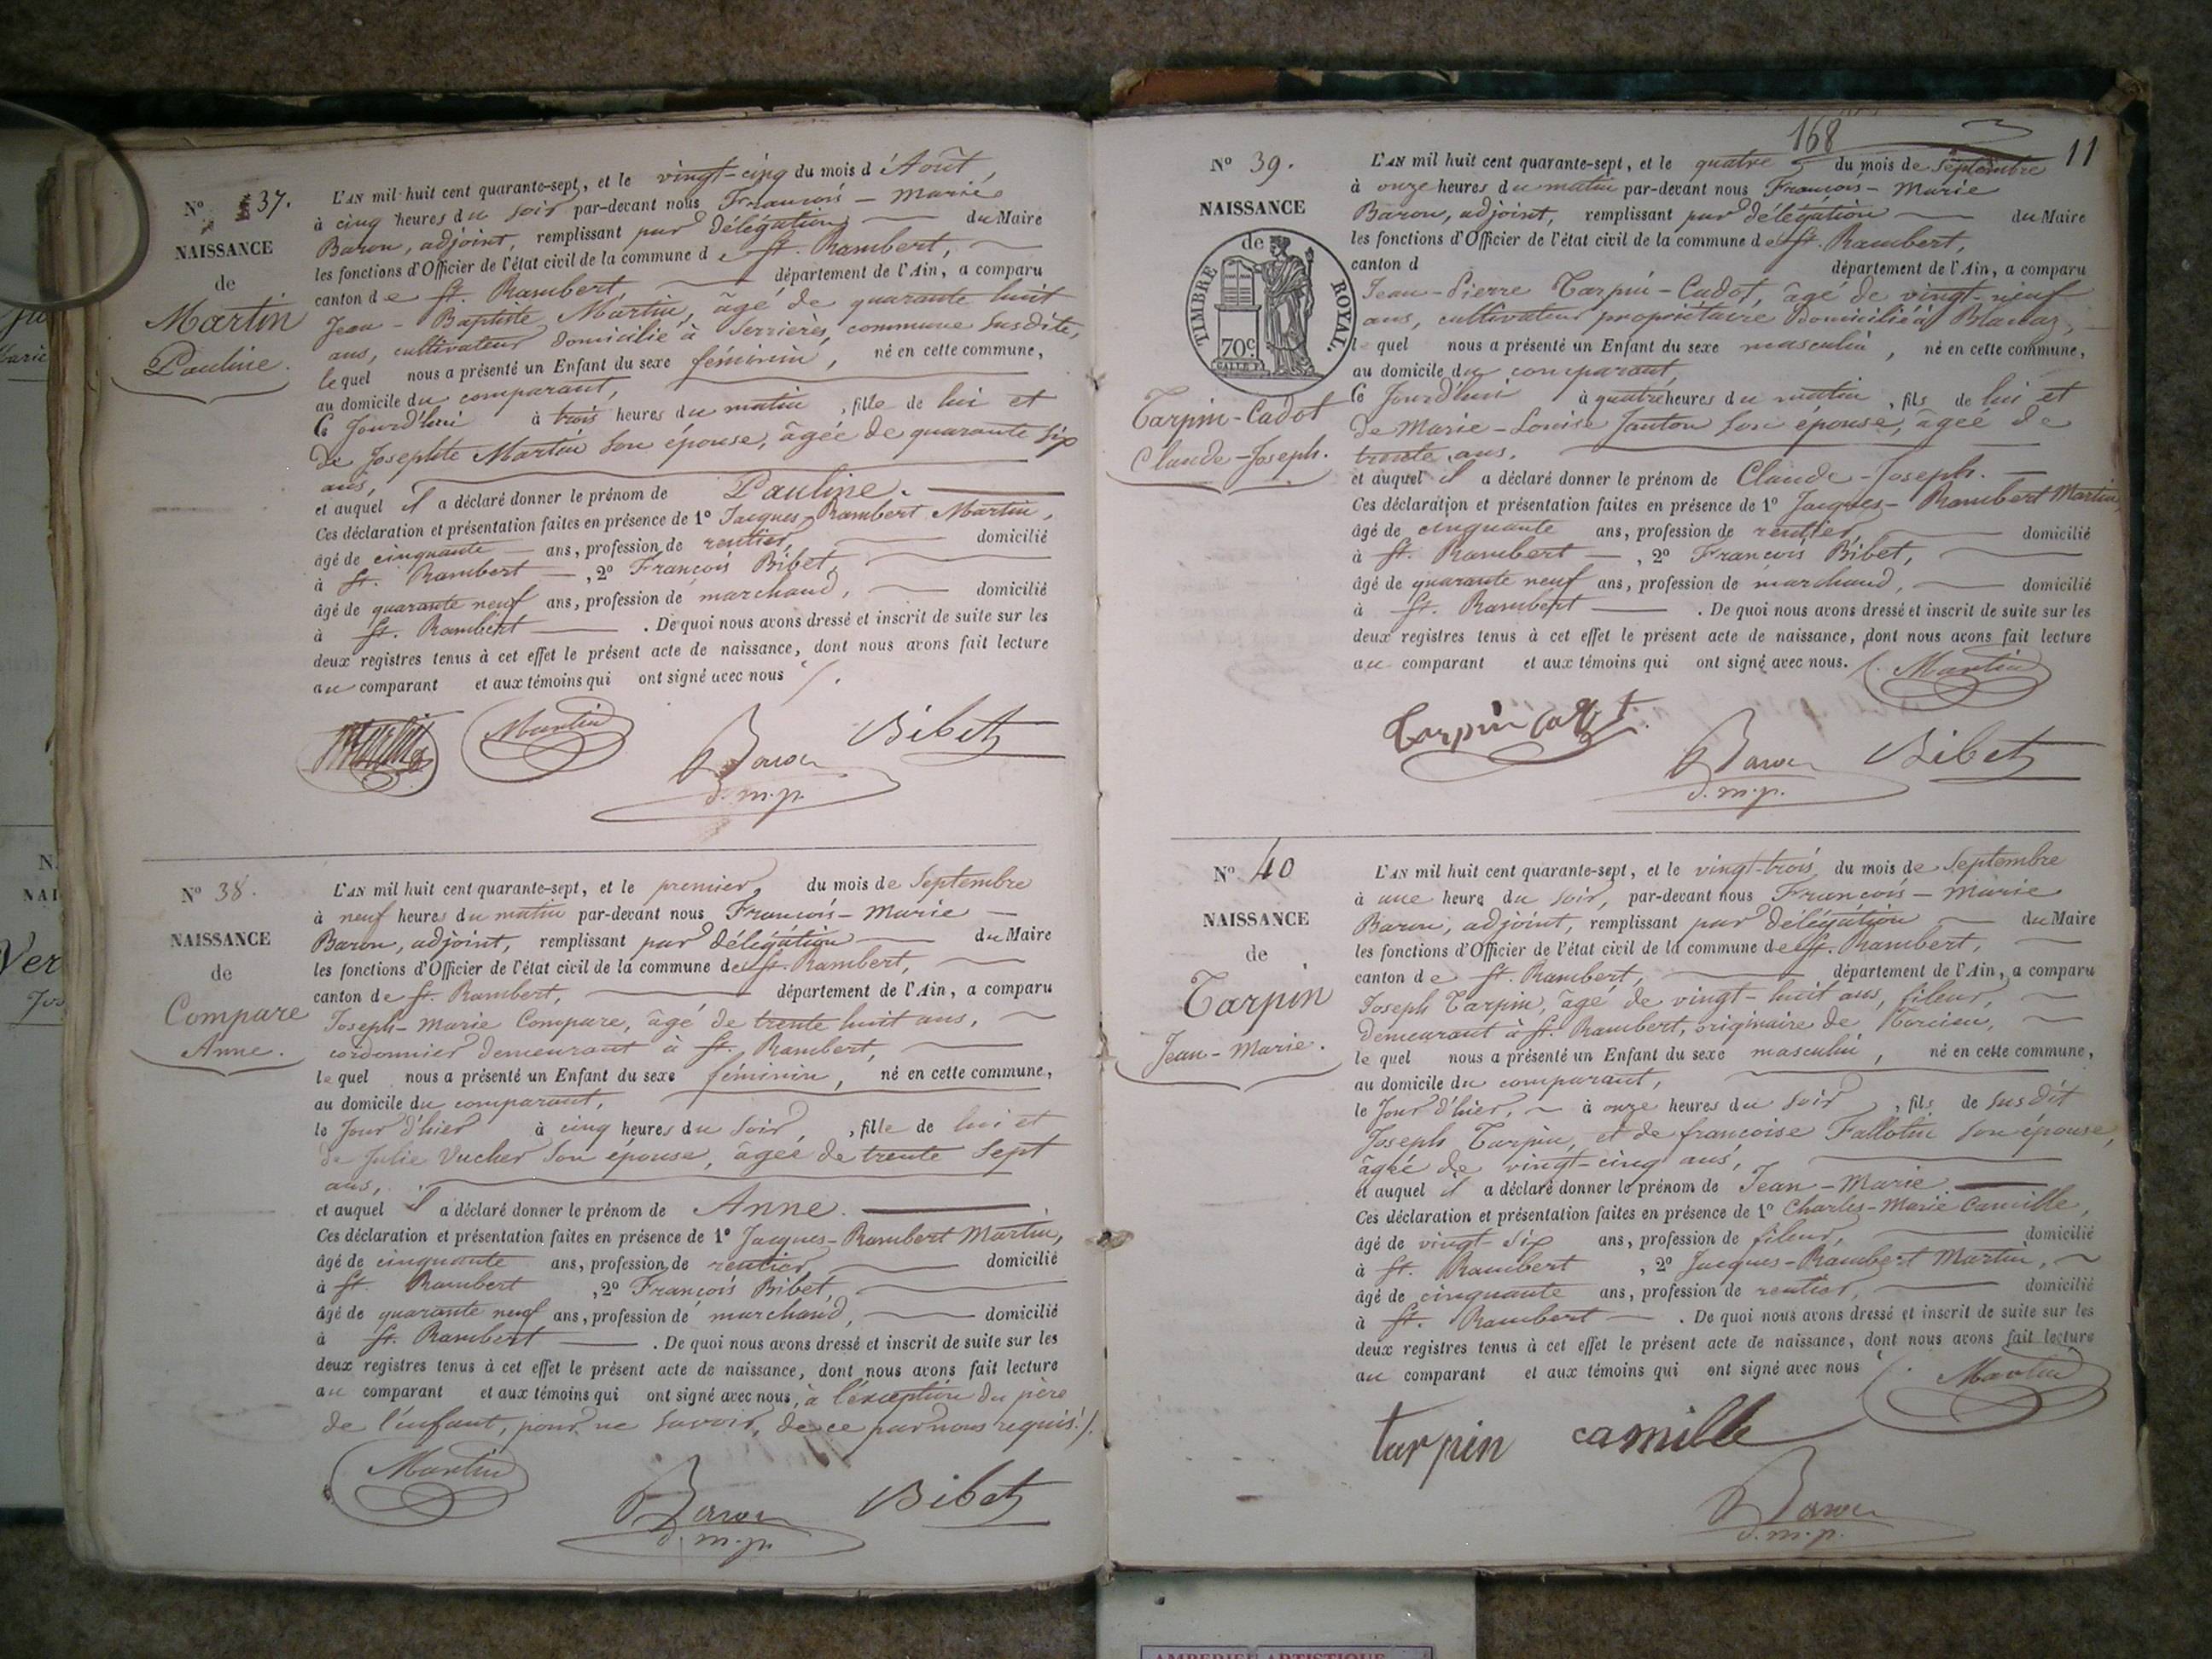 Nº 37.
NAISSANCE
de
Martin
Pauline.
L'AN mil huit cent quarante-sept, et le vingt-cinq du mois d'Août,
à cinq heures du soir par-devant nous François-Marie
Baron, adjoint, remplissant par délégation du Maire
les fonctions d'Officier de l'état civil de la commune de St. Rambert,
canton de St. Rambert, département de l'Ain, a comparu
Jean-Baptiste Martin, âgé de quarante huit
ans, cultivateur domicilié à Serrières, commune susdite,
lequel nous a présenté un Enfant du sexe féminin, né en cette commune,
au domicile du comparant,
Ce jourd'hui à trois heures du matin, fille de lui et
de Josephte Martin son épouse, âgée de quarante six
ans,
et auquel il a déclaré donner le prénom de Pauline.
Ces déclaration et présentation faites en présence de 1º Jacques-Rambert Martin,
âgé de cinquante ans, profession de rentier, domicilié
à St. Rambert, 2º François Bibet,
âgé de quarante neuf ans, profession de marchand, domicilié
à St. Rambert. De quoi nous avons dressé et inscrit de suite sur les
deux registres tenus à cet effet le présent acte de naissance, dont nous avons fait lecture
au comparant et aux témoins qui ont signé avec nous /.
Martin Baron Bibet
d.m.p.
Nº 38.
NAISSANCE
de
Compare
Anne.
L'AN mil huit cent quarante-sept, et le premier, du mois de Septembre
à neuf heures du matin par-devant nous François-Marie
Baron, adjoint, remplissant par délégation du Maire
les fonctions d'Officier de l'état civil de la commune de St. Rambert,
canton de St. Rambert, département de l'Ain, a comparu
Joseph-Marie Compare, âgé de trente huit ans,
cordonnier demeurant à St. Rambert,
lequel nous a présenté un Enfant du sexe féminin, né en cette commune,
au domicile du comparant,
le jour d'hier à cinq heures du soir, fille de lui et
de Julie Vucher son épouse, âgée de trente sept
ans,
et auquel il a déclaré donner le prénom de Anne.
Ces déclaration et présentation faites en présence de 1º Jacques-Rambert Martin,
âgé de cinquante ans, profession de rentier, domicilié
à St. Rambert, 2º François Bibet,
âgé de quarante neuf ans, profession de marchand, domicilié
à St. Rambert. De quoi nous avons dressé et inscrit de suite sur les
deux registres tenus à cet effet le présent acte de naissance, dont nous avons fait lecture
au comparant et aux témoins qui ont signé avec nous, à l'exception du père
de l'enfant, pour ne savoir, de ce par nous requis./.
Martin Baron Bibet
d.m.p.
168
11
Nº 39.
NAISSANCE
de
TIMBRE ROYAL.
70c
Tarpin-Cadot
Claude-Joseph.
L'AN mil huit cent quarante-sept, et le quatre du mois de Septembre
à onze heures du matin par-devant nous François-Marie
Baron, adjoint, remplissant par délégation du Maire
les fonctions d'Officier de l'état civil de la commune de St. Rambert,
canton d département de l'Ain, a comparu
Jean-Pierre Tarpin-Cadot, âgé de vingt-neuf
ans, cultivateur propriétaire domicilié à Blanaz,
lequel nous a présenté un Enfant du sexe masculin, né en cette commune,
au domicile du comparant,
Ce jourd'hui à quatre heures du matin, fils de lui et
de Marie-Louise Janton son épouse, âgée de
trente ans.
et auquel il a déclaré donner le prénom de Claude-Joseph.
Ces déclaration et présentation faites en présence de 1º Jacques-Rambert Martin,
âgé de cinquante ans, profession de rentier, domicilié
à St. Rambert, 2º François Bibet,
âgé de quarante neuf ans, profession de marchand, domicilié
à St. Rambert. De quoi nous avons dressé et inscrit de suite sur les
deux registres tenus à cet effet le présent acte de naissance, dont nous avons fait lecture
au comparant et aux témoins qui ont signé avec nous. /. Martin
Tarpin Cadot Baron Bibet
d.m.p.
Nº 40
NAISSANCE
de
Tarpin
Jean-Marie.
L'AN mil huit cent quarante-sept, et le vingt-trois du mois de Septembre
à une heure du soir, par-devant nous François-Marie
Baron, adjoint, remplissant par délégation du Maire
les fonctions d'Officier de l'état civil de la commune de St. Rambert,
canton de St. Rambert, département de l'Ain, a comparu
Joseph Tarpin, âgé de vingt-huit ans, fileur,
demeurant à St. Rambert, originaire de Torcieu,
lequel nous a présenté un Enfant du sexe masculin, né en cette commune,
au domicile du comparant,
le jour d'hier, à onze heures du soir, fils de susdit
Joseph Tarpin, et de françoise Fallotin son épouse,
âgée de vingt-cinq ans,
et auquel il a déclaré donner le prénom de Jean-Marie.
Ces déclaration et présentation faites en présence de 1º Charles-Marie Camille,
âgé de vingt-six ans, profession de fileur, domicilié
à St. Rambert, 2º Jacques-Rambert Martin,
âgé de cinquante ans, profession de rentier, domicilié
à St. Rambert. De quoi nous avons dressé et inscrit de suite sur les
deux registres tenus à cet effet le présent acte de naissance, dont nous avons fait lecture
au comparant et aux témoins qui ont signé avec nous /. Martin
tarpin camille
Baron
d.m.p.
AMBERIEU ARTISTIQUE